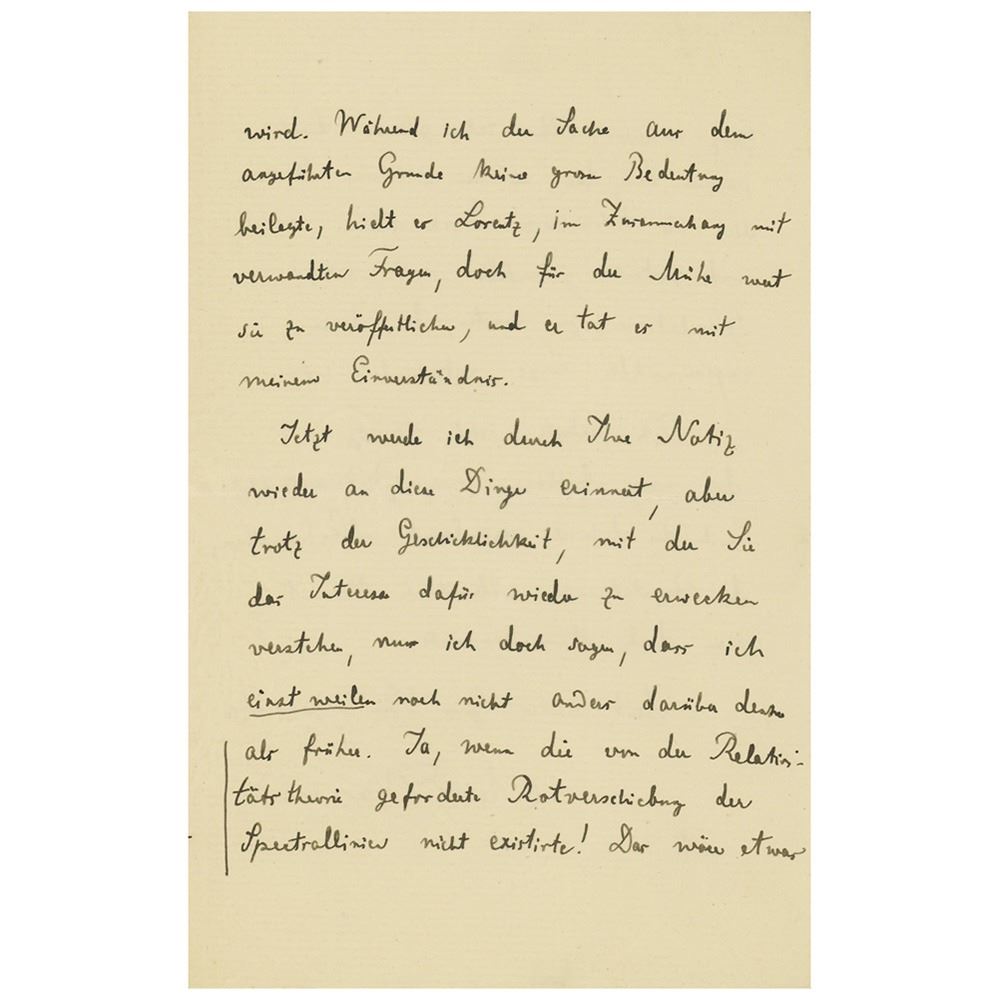 wird. Während ich der Sache aus dem
angeführten Grunde keine grosse Bedeutung
beilegte, hielt es Lorentz, im Zusammenhang mit
verwandten Fragen, doch für der Mühe wert
sie zu veröffentlichen, und er tat es mit
meinem Einverständnis.
Jetzt werde ich durch Ihre Notiz
wieder an diese Dinge erinnert, aber
trotz der Geschicklichkeit, mit der Sie
das Interesse dafür wieder zu erwecken
verstehen, muss ich doch sagen, dass ich
einstweilen noch nicht anders darüber denke
als früher. Ja, wenn die von der Relativi-
tätstheorie geforderte Rotverschiebung der
Spectrallinien nicht existirte! Das wäre etwas